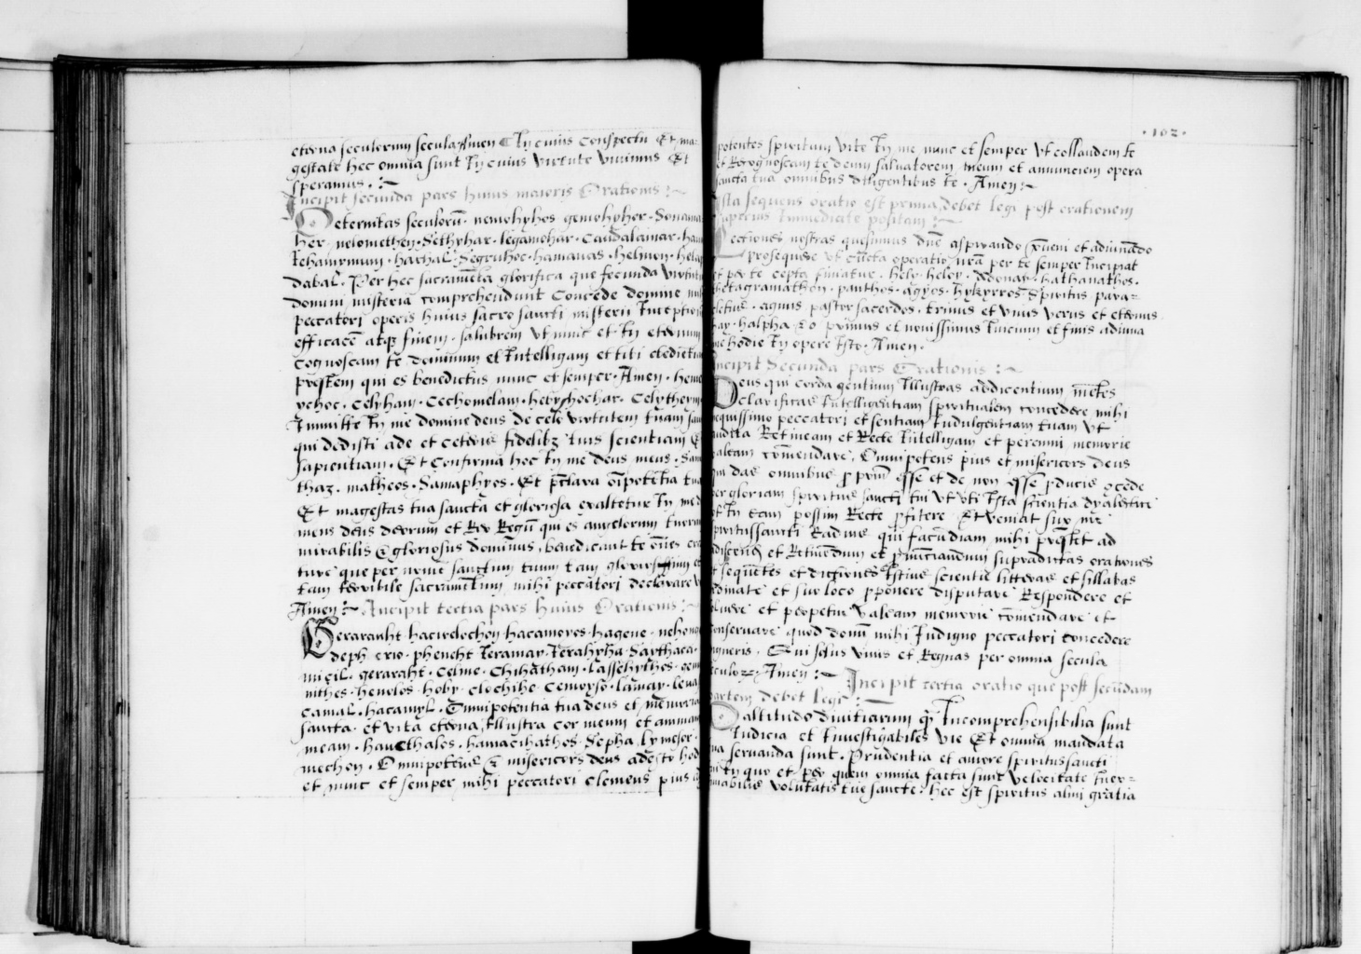 eterna seculorum secula Amen ¶ In cuius conspectu Et ma-
gestate hec omnia sunt In cuius virtute vivimus Et
speramus.
Incipit secunda pars huius maioris Orationis
O eternitas seculoru᷃. nemohyhos gemohyhor. Sonama
her. nelomethen. Sethyhar. legamohar. Caudalamar. hau
tehamrmam. hathal. Segruhoc. hamanas. helmon. hela
dabal. Per hec sacrame᷃ta glorifica que fecunda virtut
domini misteria comprehendunt Concede domine mi
peccatori operis huius sacro sancti misterii Inceptio
efficace᷃ atq᷃ finem. salubrem ut nunc et In eternum
cognoscam te dominum et Intelligam et tibi
prestem qui es benedictus nunc et semper. Amen. heme
vehoc. Celyham. Cechomelam. helyshochar. Celythery
Inmitte In me domine deus de celo virtutem tuam
qui dedisti ade et ceteris fidelib᷃ tuis scientiam
sapientiam. Et Confirma hoc In me deus meus. Sam
thaz. matheos. Samaphyos. Et p᷃clara o᷃ipote᷃tia tua
Et magestas tua sancta et gloriosa exaltetur In me
meus deus deorum et Rex Regu᷃ qui es angelorum tuorum
mirabilis et gloriosus dominus, benedicant te
ture que per nome sanctum tuum tam
tam terribile sacrame᷃tum mihi peccatori declarare
Amen Incipit tertia pars huius Orationis
Gerarauht hacirelochon. hacamores. hagene. nehono
deph. crio. phenoht. Teramar. Terahyha. Sarthaca
migil. geraraht. Celme. Chihatham. Lassehythos.
nithes. henolos. hoby. clochihe. Cemoyso. lamay. leva
camal. hacamyl. Omnipotentia tua deus et memoria
sancta. et vita eterna, Illustra cor meum et animam
meam. hauethales. hamacihathos. Sepha. lymeser.
mechon. Omnipotens et misericors deus adesto hod
et nunc et semper mihi peccatori clemens pius
.102.
potentes spiritum vite In me nunc et semper ut collaudem te
et Recognoscam te deum salvatorem meum et annunciem opera
sancta tua omnibus diligentibus te. Amen
Ista sequens oratio est prima debet legi post orationem
superius Immediate positam
Actiones nostras quesumus d᷃ne aspirando p᷃veni et adiuuando
prosequere ut cu᷃cta operatio n᷃ra per te semper Incipiat
et per te cepta finiatur. hely. heloy. Adonay. hathanathos.
thetagramathon. panthos. agyos. hyskyrros. Spiritus para-
cletus. agnus pastor sacerdos. trinus et unus verus et eternus
hay. halpha et o primus et novissimus Inicium et finis adiuva
me hodie In opere Isto. Amen.
Incipit Secunda pars Orationis
Deus qui corda gentium Illustras addicentium me᷃tes
clarificas Intelligentiam spiritualem concedere mihi
nequissimo peccatori et sentiam Indulgentiam tuam ut
audita Retineam et Recte Intelligam et perenni memorie
valeam come᷃ndare. Omnipotens pius et misericors deus
qui das omnibus esse et de non esse producis
per gloriam spiritus sancti tui ut uti Ista scientia dyalectici
et In eam possim Recte p᷃fitere. Et veniat sup me
spiritussancti Radius qui facundiam mihi prestet ad
et Retinendum et p᷃nunciandum supradictas orationes
et seque᷃tes et dictiones Istius scientie litteras et sillabas
et suo loco ponere disputare Respondere et
et perpetue Valeam memorie comendare et
conservare quod donu᷃ mihi Indigno peccatori concedere
digneris. Qui solus vivis et Regnas per omnia secula
seculor. Amen Incipit tertia oratio que post secundam
partem debet legi
O altitudo divitiarum q᷃ Incomprehensibilia sunt
Iudicia et Investigabiles vie Et omnia mandata
tua servanda sunt. Prudentia et amore spiritussancti
In quo et per quem omnia facta sunt velocitate Iner-
voluntatis tue sancte. hec est spiritus almi gratia